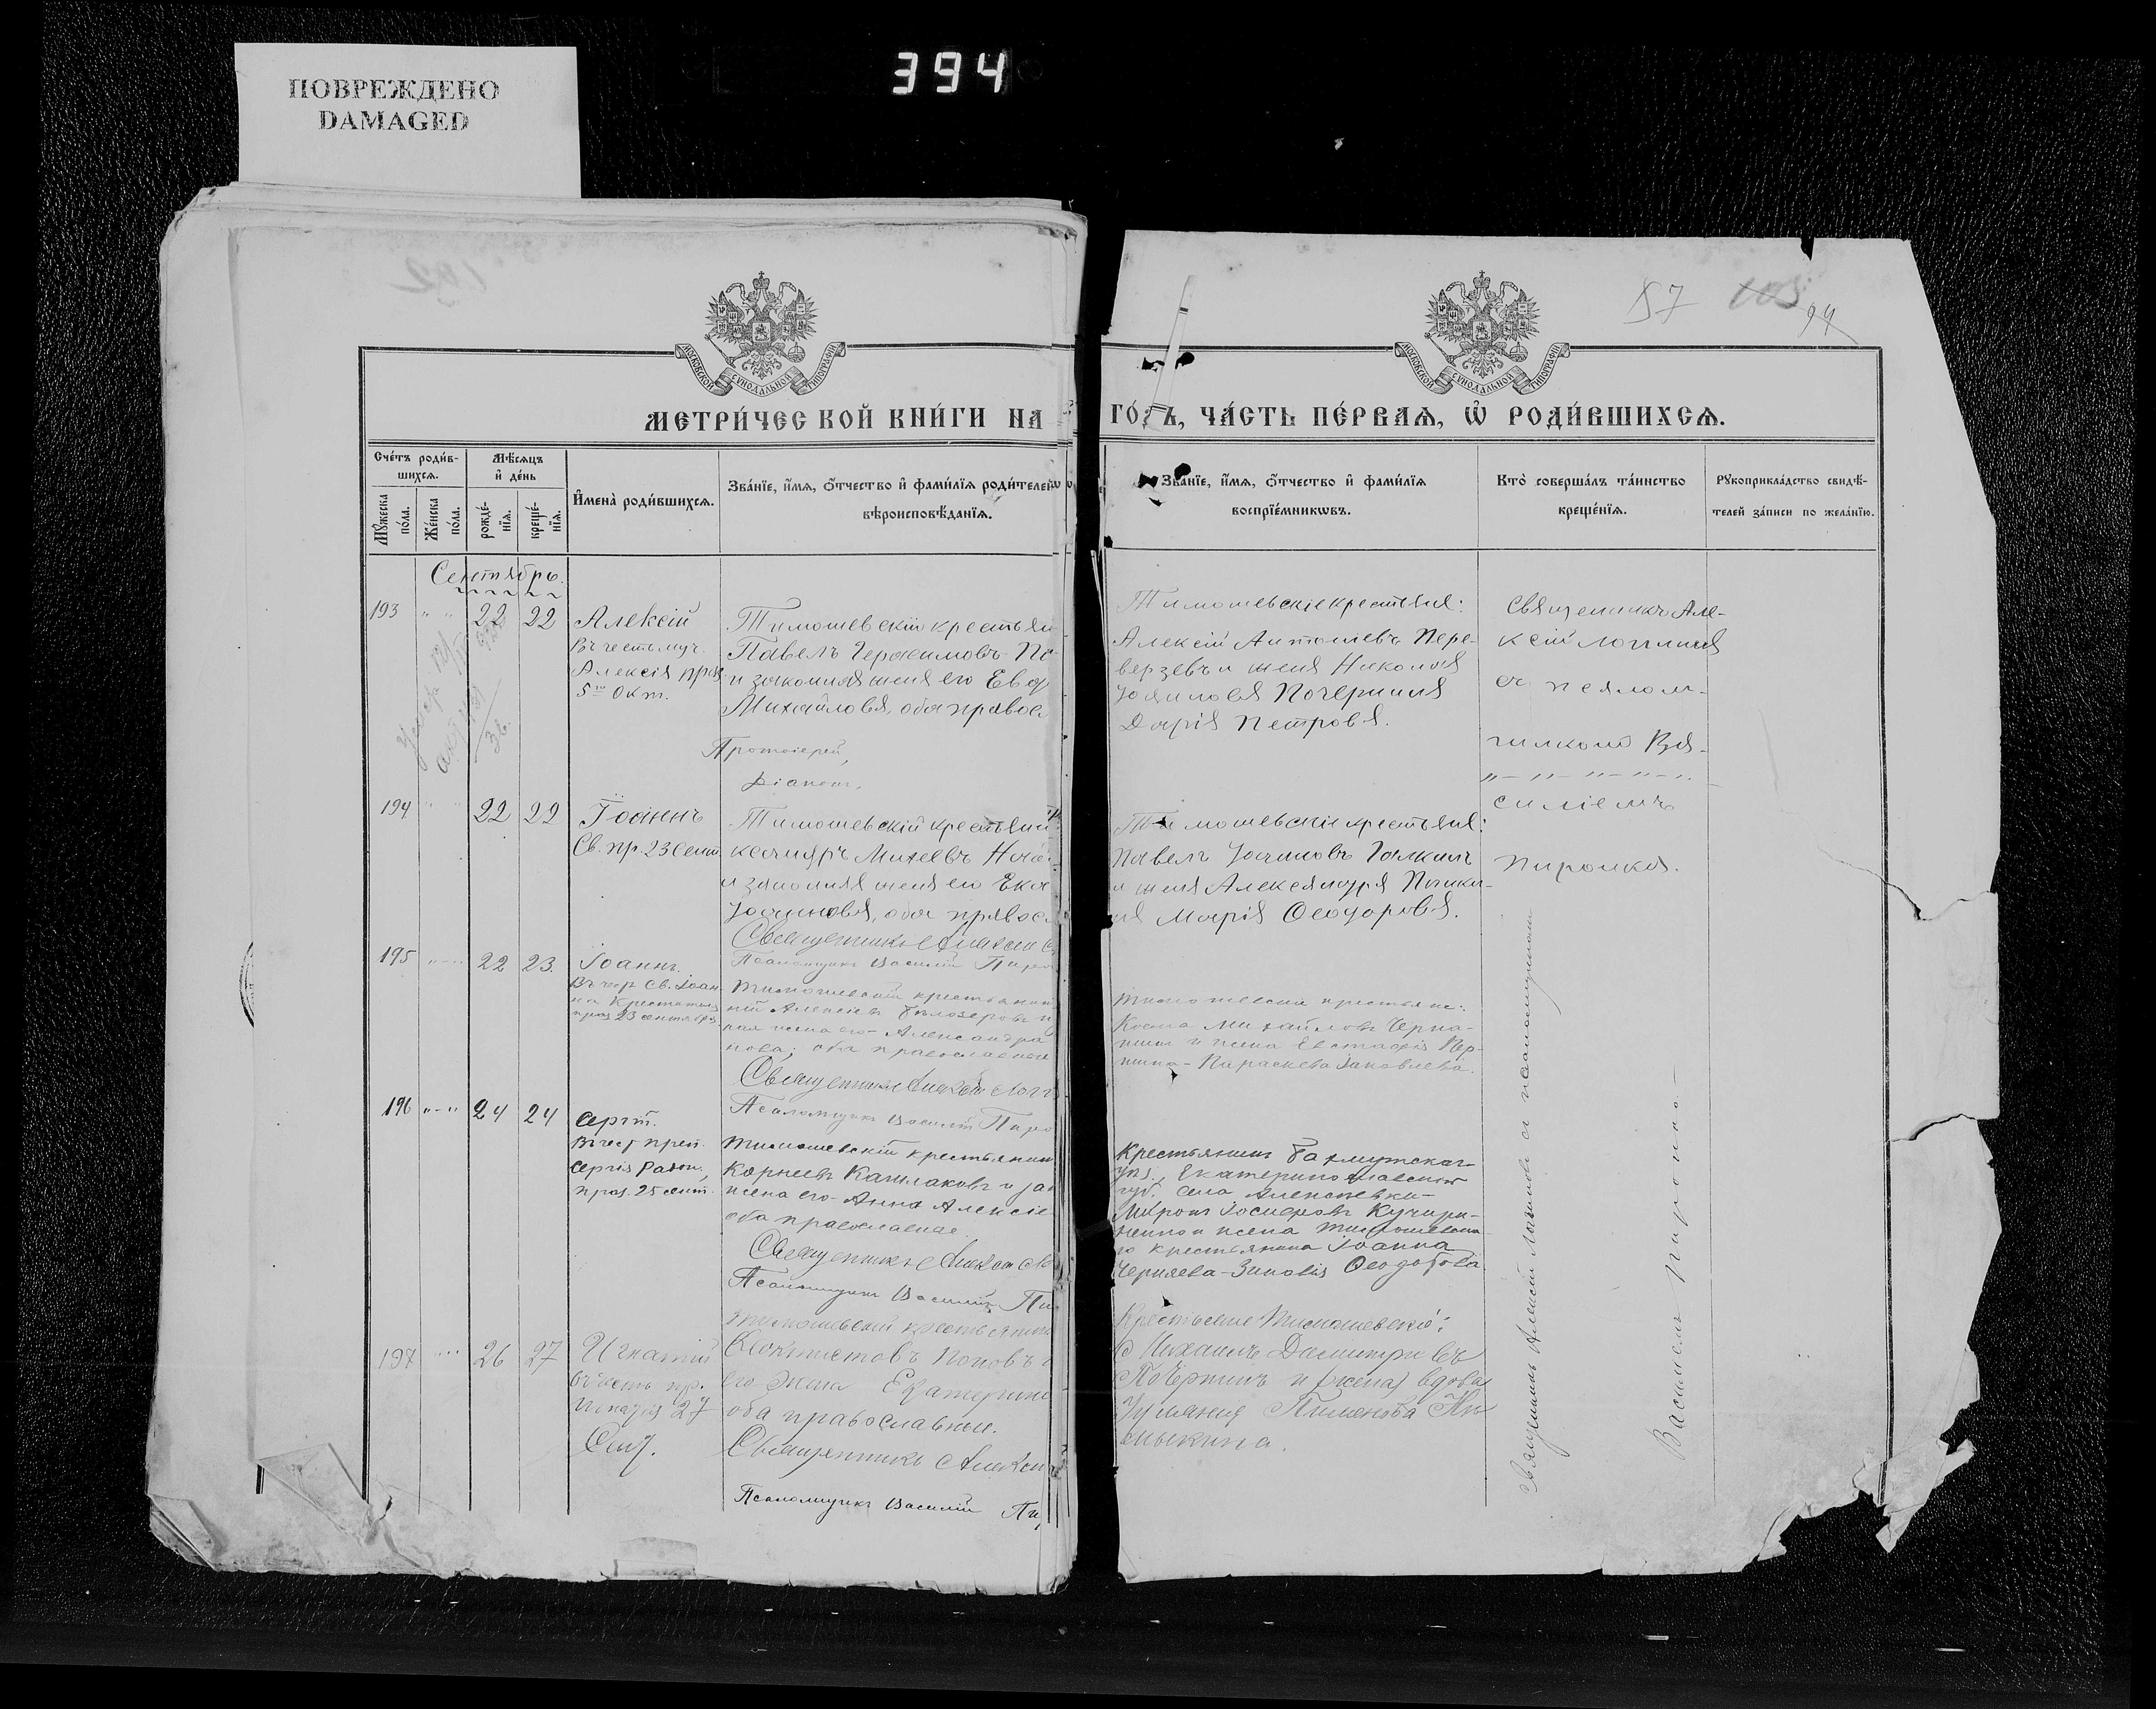 ПОВРЕЖДЕНО
DAMAGED
394
57
99
МОСКОВСКОЙ СУНОДАЛЬНОЙ ТИПОГРАФІИ
МОСКОВСКОЙ СУНОДАЛЬНОЙ ТИПОГРАФІИ
МЕТРИ́ЧЕСКОЙ КНИ́ГИ НА
ГО́ДЪ, ЧА́СТЬ ПЕ́РВАѦ, Ѡ҆ РОДИ́ВШИХСѦ.
Сче́тъ роди́в-
шихсѧ.
Мѣ́сѧцъ
и҆ де́нь
Мꙋ́жеска
по́ла.
Же́нска
по́ла.
рожде́-
нїѧ.
креще́-
нїѧ.
И҆мена̀ роди́вшихсѧ.
Зва́нїе, и҆́мѧ, ѻ҆́тчество и҆ фами́лїѧ роди́телей
вѣроисповѣ́данїѧ.
Зва́нїе, и҆́мѧ, ѻ҆́тчество и҆ фами́лїѧ
воспрїе́мникѡвъ.
Кто̀ соверша́лъ та́инство
креще́нїѧ.
Рꙋкоприкла́дство свидѣ́-
телей за́писи по жела́нїю.
Сентябрь.
193 " " 22 22
Алексій
Въ честь муч.
Алексія праз.
5го Окт.
Тимошевскій крестьян
Павелъ Герасимовъ По
и законная жена его Евд
Михайлова, оба правос
Протоіерей,
Діаконъ,
Тимошевскіе крестьяне:
Алексій Антоніевъ Пере-
верзевъ и жена Николая
Іоаннова Почернина
Дарія Петрова.
Священникъ Але-
ксій Логиновъ
съ псалом-
щикомъ Ва-
" - " - " - " - "
силіемъ
Пиронко.
194 " " 22 22
Іоаннъ
Св. пр. 23 Сент.
Тимошевскій крестьянин
ксандръ Михеевъ Нача
и законная жена его Ека
Іоаннова, оба правос
Священникъ Алексій
Псаломщикъ Василій Пиро
Тимошевскіе крестьяне:
Павелъ Іоанновъ Галкинъ
и жена Александра
Марія Ѳеодорова.
195 " " 22 23.
Іоаннъ.
Въ чес. Св. Іоан-
на Крестителя
праз. 23 сентября
Тимошевскій крестьянин
ній Алексіевъ Бѣлозеровъ и
ная жена его - Александра
нова; оба православные
Священникъ Алексій Логи
Псаломщикъ Василій Пиро
Тимошевскіе крестьяне:
Косма Михайловъ Черна-
и жена Евстафія
- Параскева Іаковлева.
196 " - " 24 24
Сергій.
Въ чест преп.
Сергія Радон.,
праз. 25 сент.
Тимошевскій крестьянин
Корнеевъ Кашлаковъ и зак
жена его - Анна Алексіе
оба православные.
Священникъ Алексій
Псаломщикъ Василій Пи
Крестьянинъ Бахмутскаго
уѣз., Екатеринославской
губ. села Алексѣевки -
Миронъ Іосифовъ Кучере-
ненко и жена Тимошевска-
го крестьянина Іоанна
Черняева - Зиновія Ѳеодотова.
197 " " 26 27
Игнатій
въ честь пр.
Игнатія 27
Сент.
Тимошевскій крестьянин
Ѳеоктистовъ Поповъ
его жена Екатерина
оба православные.
Священникъ Алексій
Псаломщикъ Василій Пи
Крестьяне Тимошевскіе:
Михаилъ Димитріевъ
Почернинъ и (жена) вдова
Пименова
Священникъ Алексій Логиновъ съ псаломщикомъ
Василіемъ Пиронко -